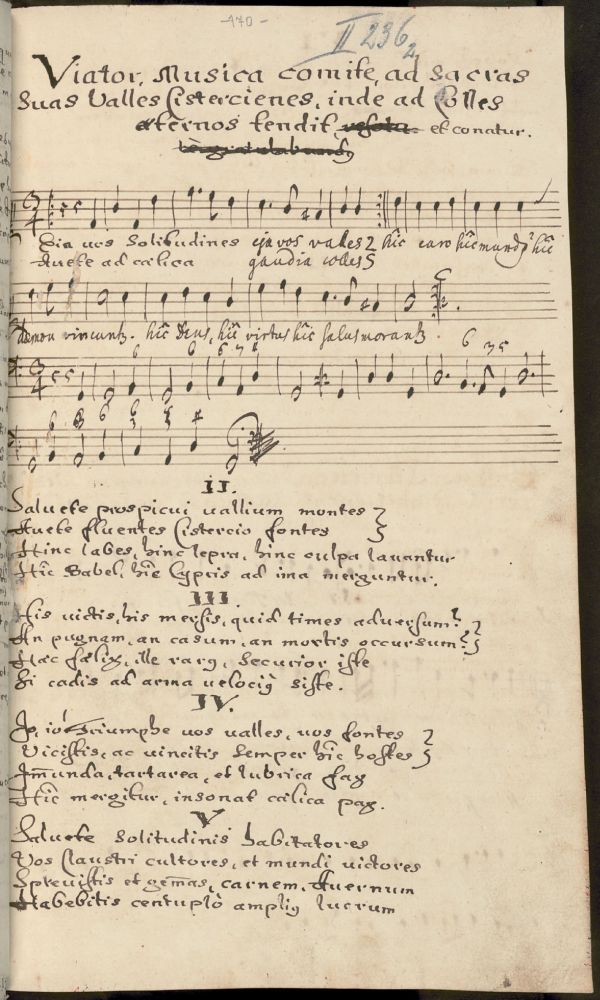 -170-
II 236 2
Viator, Musica comite, ad sacras
suas Valles Cistercienes, inde ad Colles
æternos tendit, et conatur.
Eia vos Solitudines eja vos valles hic caro hic mundus hic
Auete ad cælica gaudia colles
Dæmon vincuntur. hic Deus, hic virtus hic salus morantur
6 6 6 7 6 6 7 5
6 6 6 6 #
II.
Saluete prospicui uallium montes
Auete fluentes Cistercio fontes
Hinc labes, hinc lepra, hinc culpa lauantur
Hic Babel, hic Cypris ad ima merguntur.
III.
His uictis, his mersis, quid times aduersum?
An pugnam, an casum, an mortis occursum?
Hac fælix, ille rarus, securior iste
Si cadis ad arma uelocius siste.
IV.
Io, io Triumphe uos ualles, uos fontes
Vicistis, ac uincitis semper hic hostes
Im̄unda, tartarea, et lubrica fax
Hic mergitur, insonat cælica pax.
V
Saluete Solitudinis habitatores
Vos Claustri cultores, et mundi uictores
Spreuistis et gem̄as, carnem, Auernum
Habebitis centuplò amplius lucrum